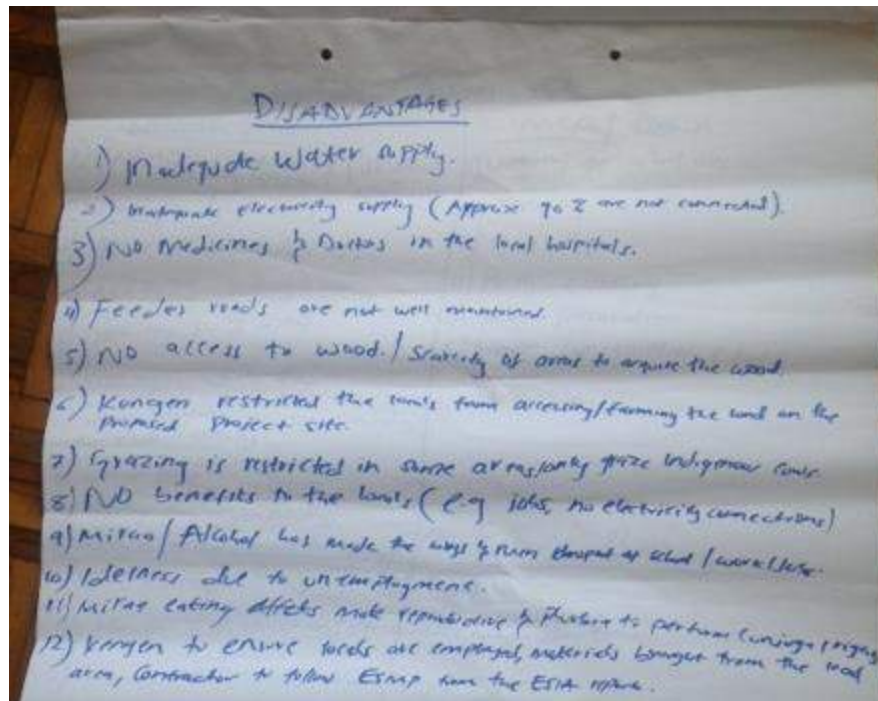 DISADVANTAGES
1) Inadequate Water supply.
2) Inadequate electricity supply (Approx 90% are not connected).
3) No Medicines & Doctors in the local hospitals.
4) Feeder roads are not well maintained.
5) No access to wood. / Scarcity of areas to acquire the wood.
6) Kengen restricted the locals from accessing/farming the land on the
Promised Project site.
7) Grazing is restricted in some areas/only graze indigenous cows.
8) No benefits to the locals (e.g jobs, no electricity connections)
9) Miraa / Alcohol has made the boys & men dropout of school /
10) Idleness due to unemployment.
11) Miraa eating affects male reproductive & to perform conjugal rights
12) Kengen to ensure locals are employed, materials bought from the local
area, Contractor to follow ESMP from the ESIA report.